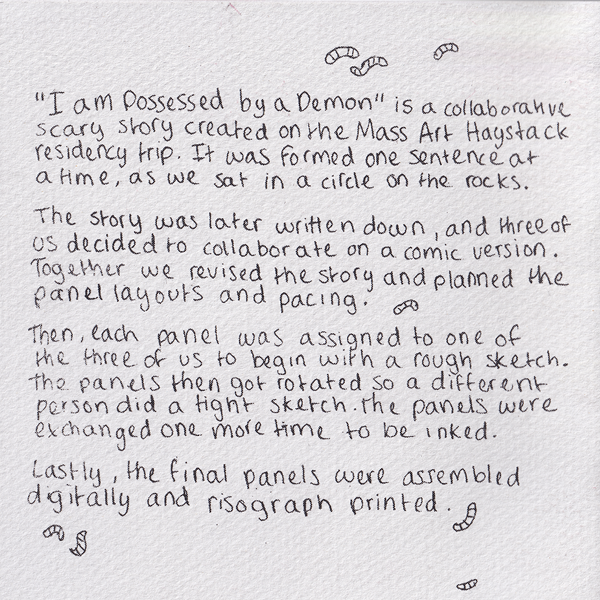 "I am Possessed by a Demon" is a collaborative
scary story created on the Mass Art Haystack
residency trip. It was formed one sentence at
a time, as we sat in a circle on the rocks.
The story was later written down, and three of
us decided to collaborate on a comic version.
Together we revised the story and planned the
panel layouts and pacing.
Then, each panel was assigned to one of
the three of us to begin with a rough sketch.
The panels then got rotated so a different
person did a tight sketch. The panels were
exchanged one more time to be inked.
Lastly, the final panels were assembled
digitally and risograph printed.